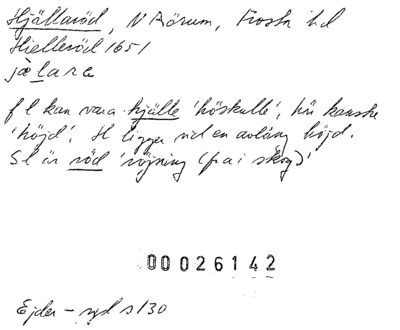 Hjällaröd, N Rörum, Frosta hd
Hielleröd 1651
jælara
fl kan vara hjälle 'höskulle', här kanske
'höjd'. H ligger vid en avlång höjd.
Sl är röd 'röjning (på i skog)'
00026142
Ejder - syd s 130